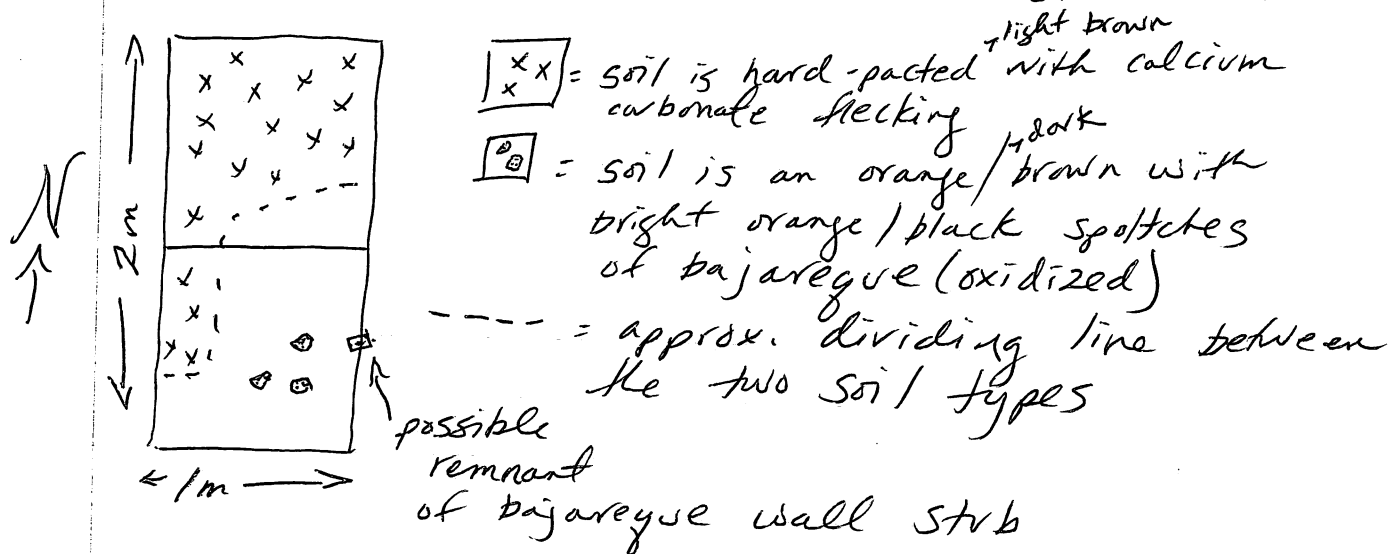 light brown
= soil is hard-pacted with calcium
carbonate flecking
dark
= soil is an orange/brown with
bright orange/black spoltches
of bajareque (oxidized)
---- = approx. dividing line between
the two soil types
N
2m
1m
possible
remnant
of bajareque wall stub